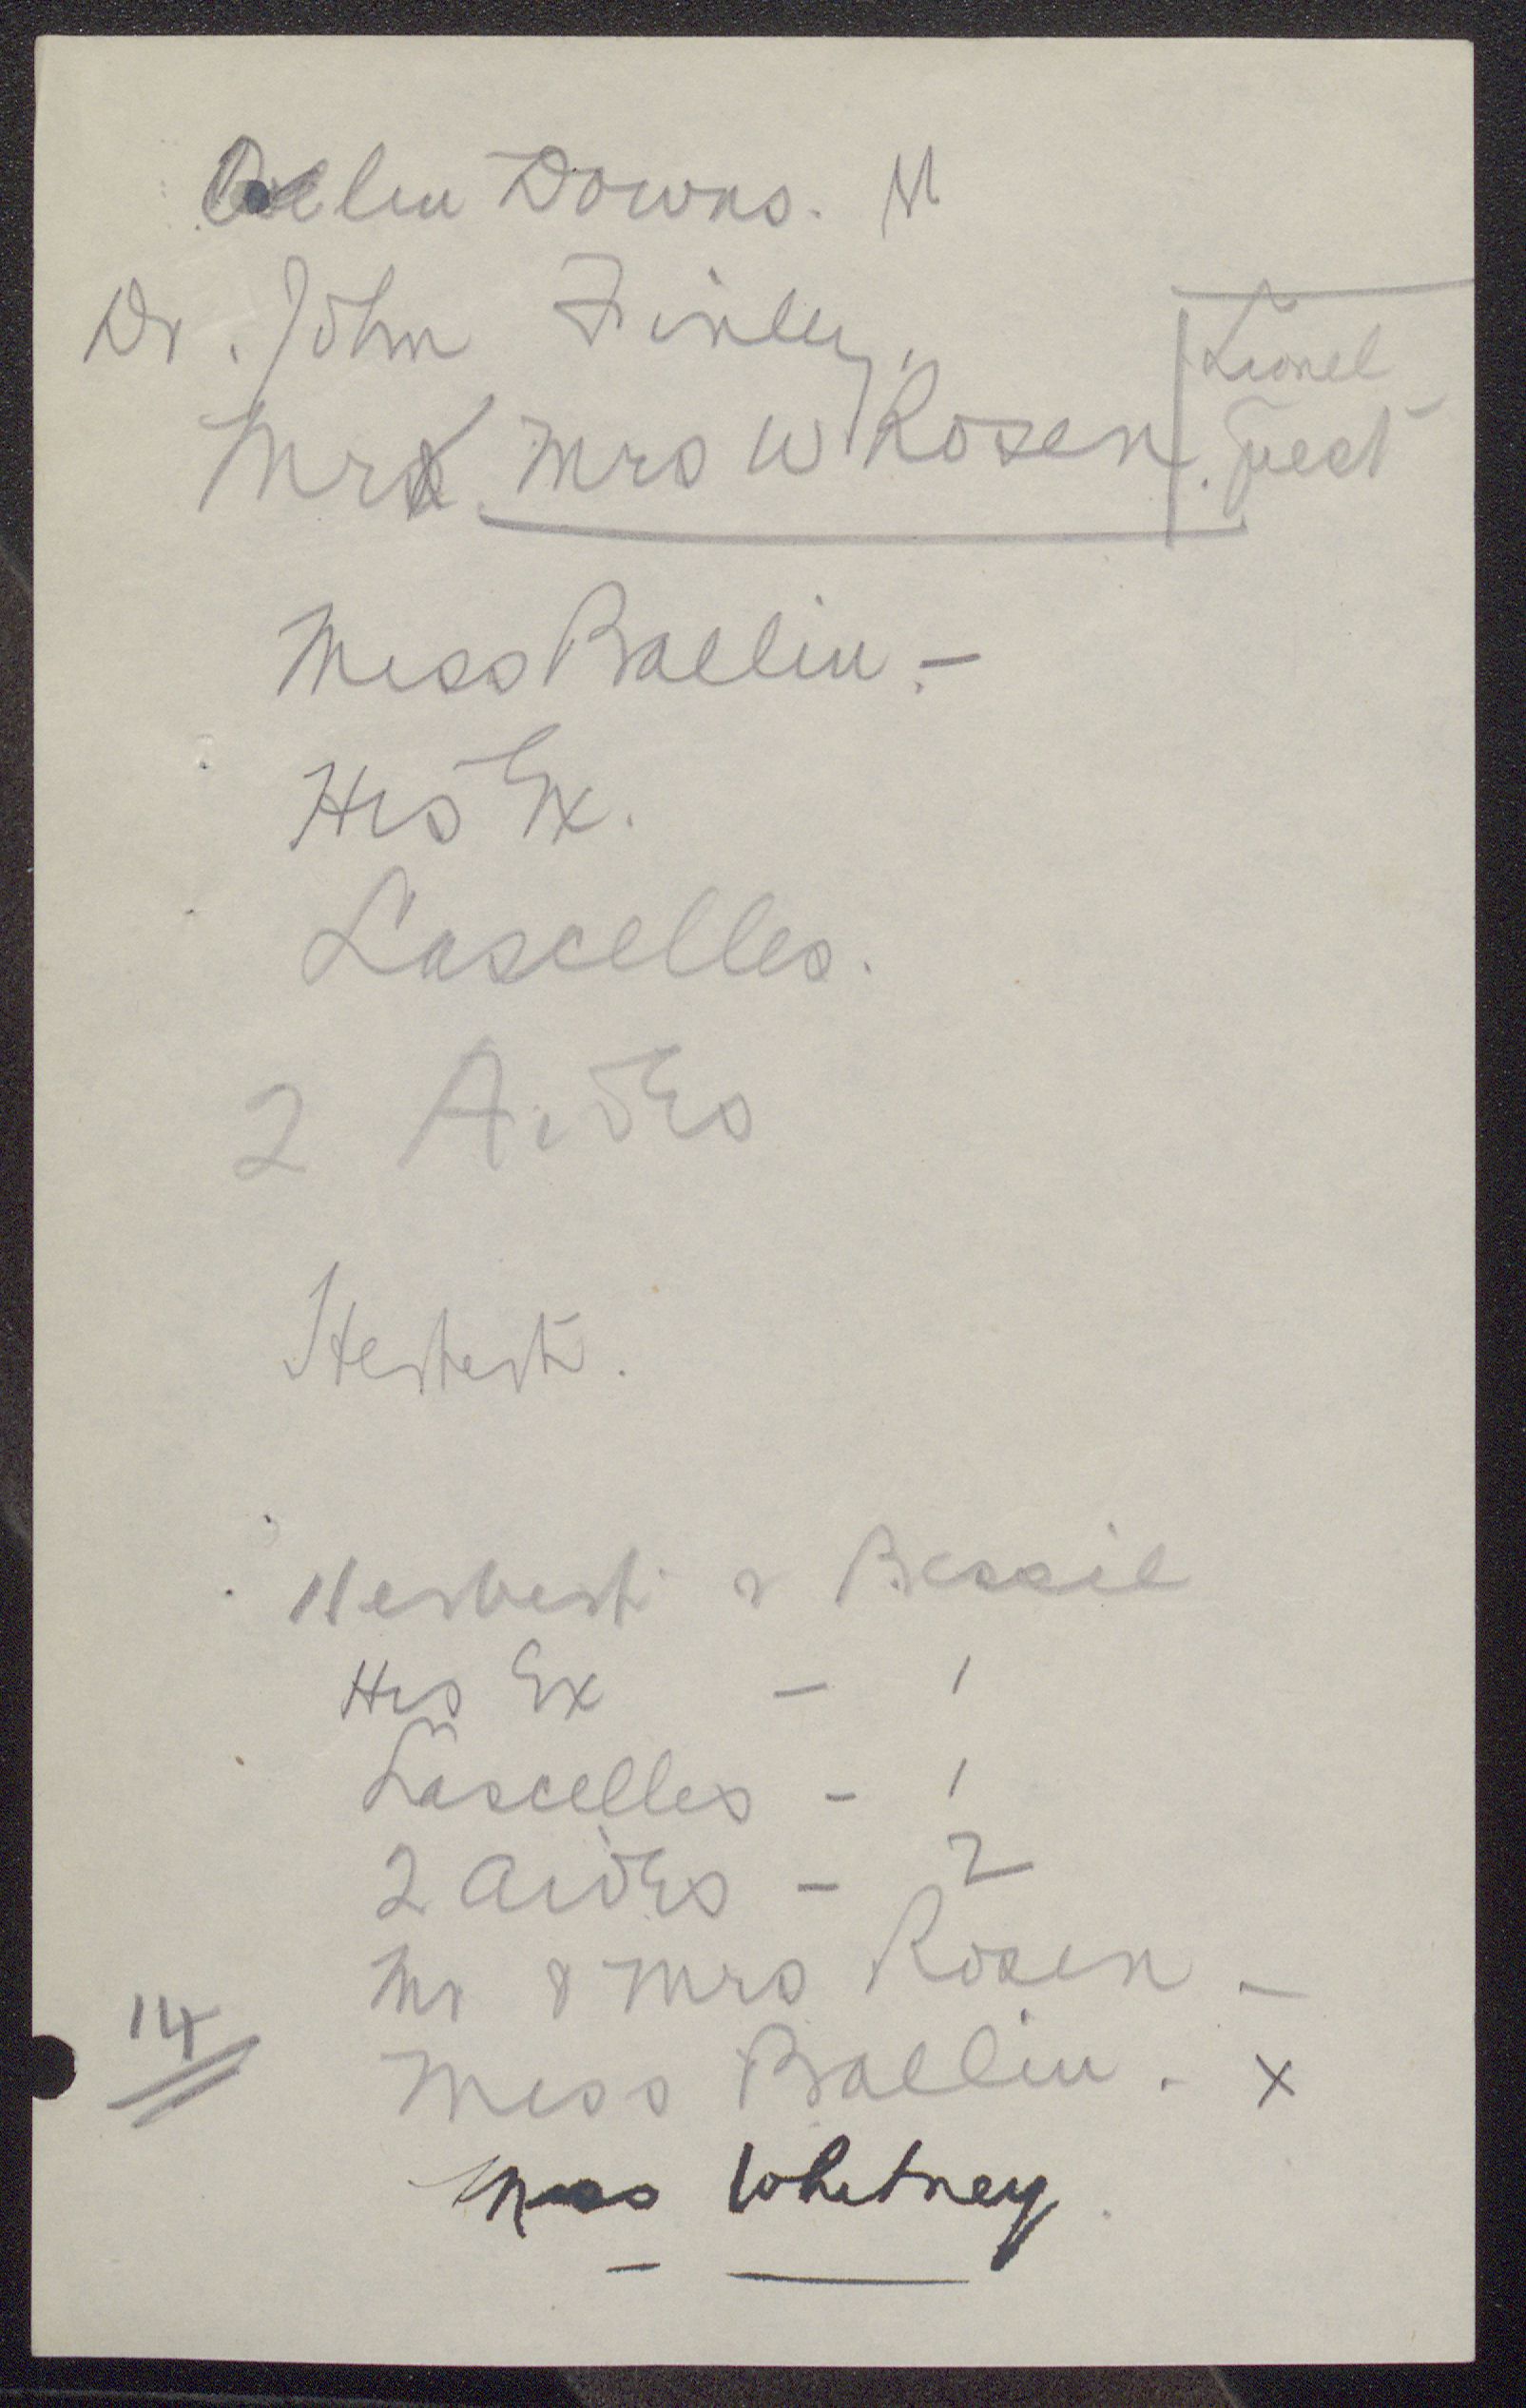 Downs.
Dr. John Finley.
Mr & Mrs W Rosen
Lionel
Guest
Miss Ballin. -
His Ex.
Lascelles.
2 Aides
Herbert.
Herbert & Bessie
His Ex - 1
Lascelles - 1
2 Aides - 2
Mr & Mrs Rosen -
14
Miss Ballin. x
Miss Whitney.